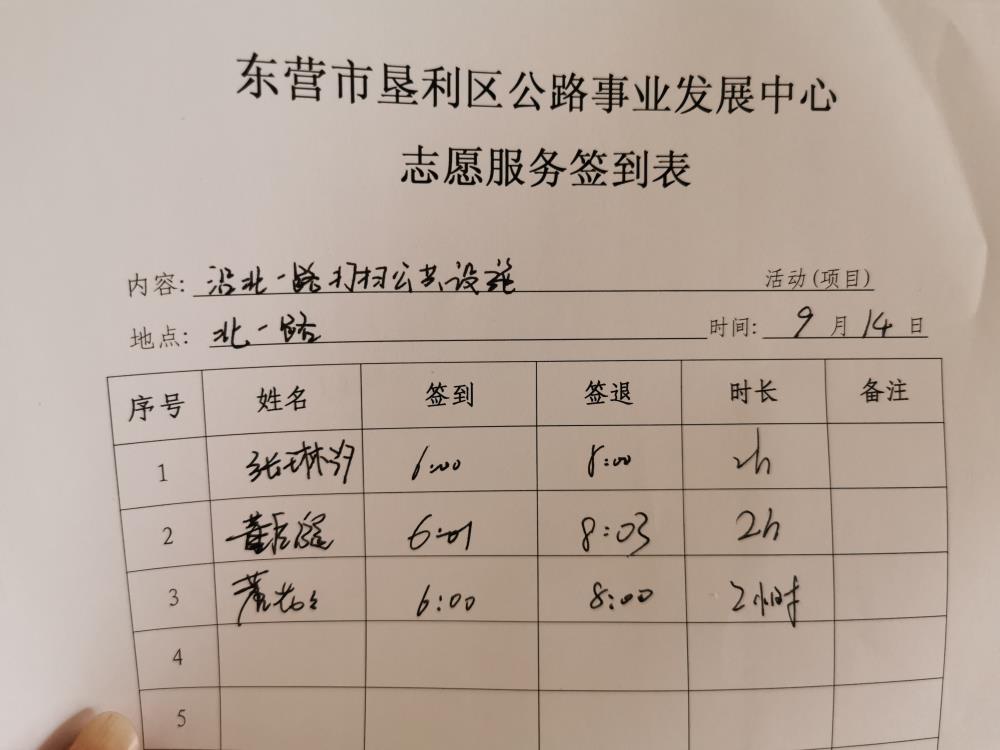 东营市垦利区公路事业发展中心
志愿服务签到表
内容: 沿北一路打扫公共设施 活动(项目)
地点: 北一路 时间: 9月14日
序号 姓名 签到 签退 时长 备注
1 张琳汐 6:00 8:00 2h
2 董 6:01 8:03 2h
3 6:00 8:00 2小时
4
5